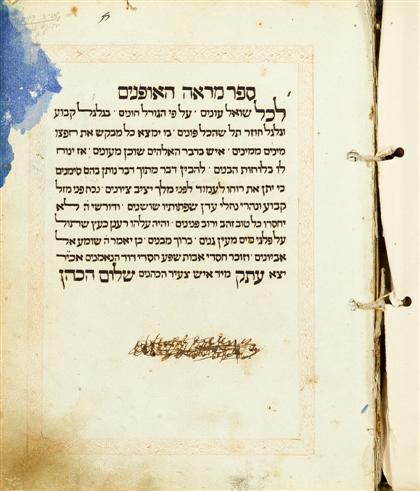 ספר מראה האופנים
לכל שואל עונים · על פי הגורל חונים · בגלגל קבוע
וגלגל חוזר תל שהכל פונים · בו ימצא כל מבקש את חפצו
מינים ממינים · איש כדבר האלהים שוכן מעונים · אז יורו
לו בלוחות הבנים · להבין דבר מתוך דבר נותן בהם סימנים
כי יתן את רוחו לעמוד לפני מלך יציב ציונים · נכח פני מזל
קבוע ונהרי נחלי עדן שפתותיו שושנים · ודורשי ה׳ לא
יחסרו כל טוב זהב ורוב פנינים · והיה עלהו רענן כעץ שתול
על פלגי מים מעין גנים · ברוך מבנים · כן יאמר ה׳ שומע אל
אביונים · וזוכר חסדי אבות שפע חסדי דוד הנאמנים אכי״ר
יצא עתק מיד איש צעיר הכהנים שלום הכהן